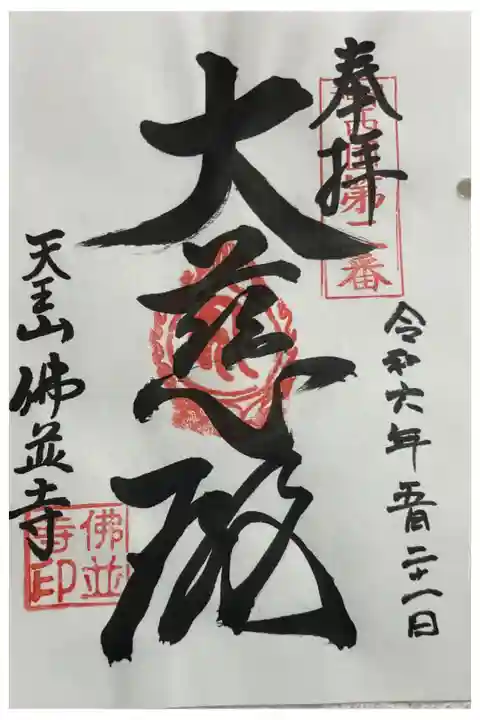 奉拝
第二番
大慈殿
令和六年五月二十一日
天王山佛並寺
佛並
寺印